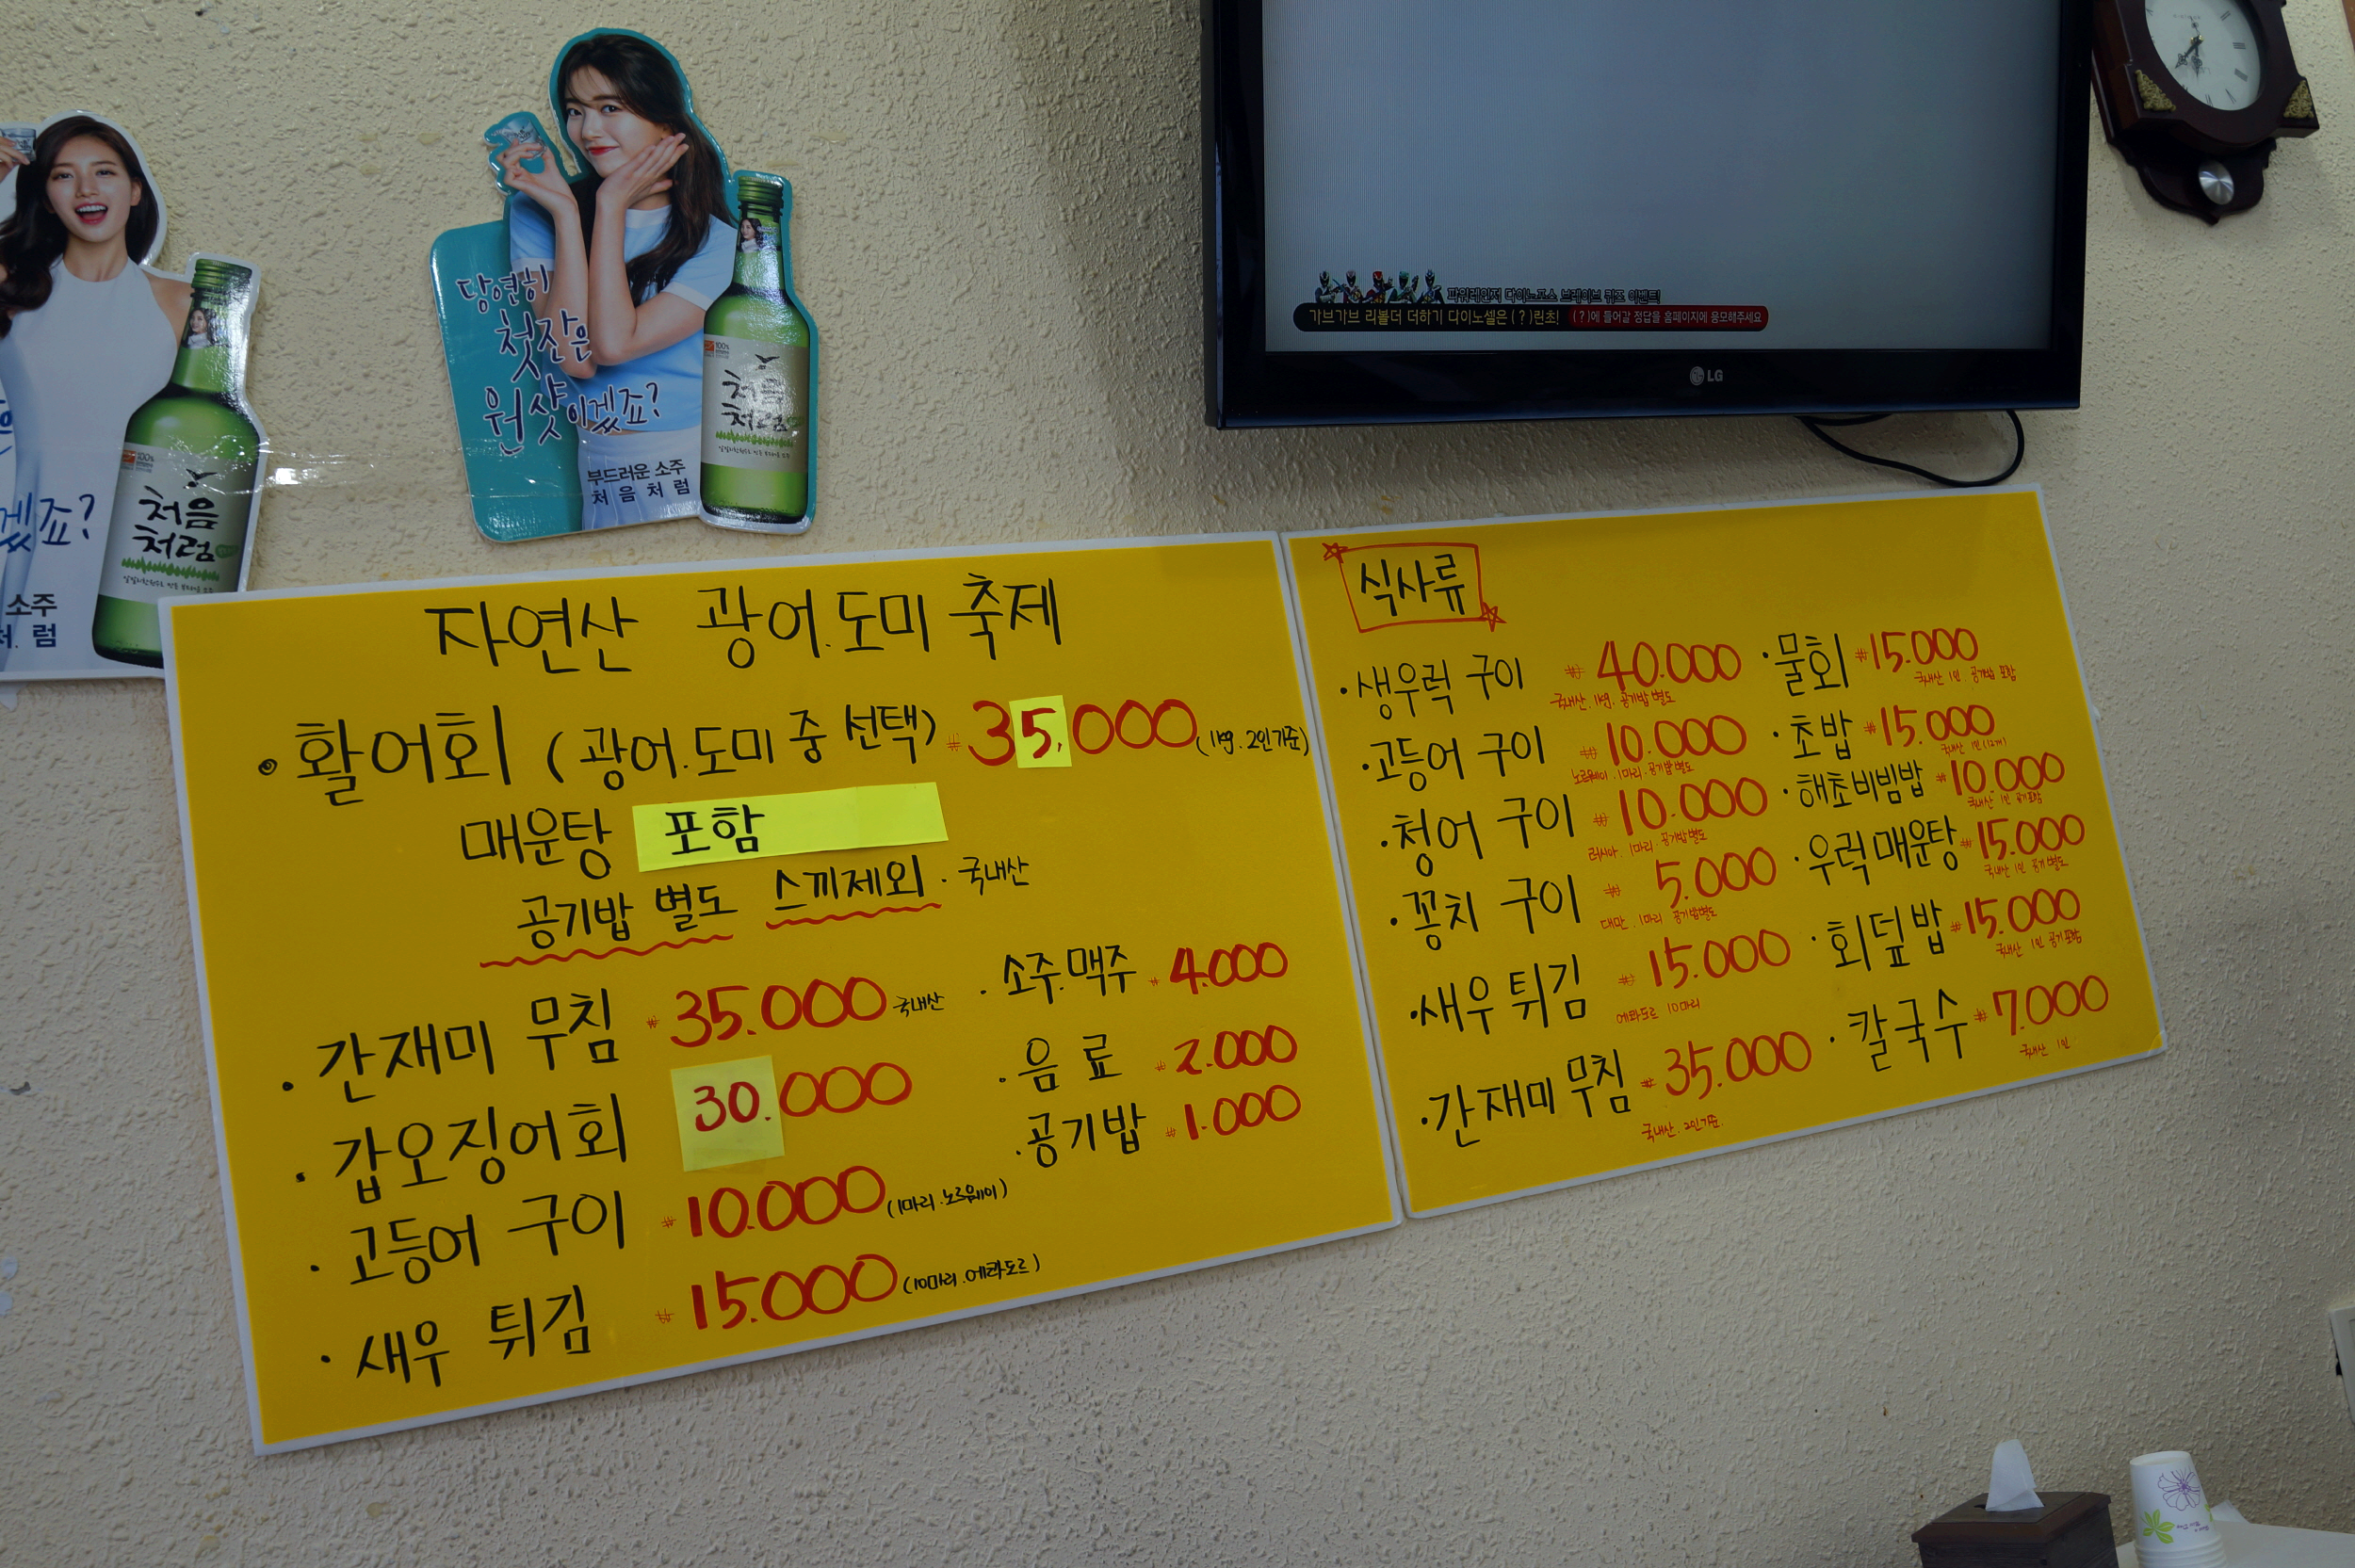 당연히
첫잔은
원샷이겠죠?
부드러운 소주
처음처럼
처음
처럼
겠죠?
소주
처럼
처음
처럼
파워레인저 다이노포스 브레이브 퀴즈 이벤트!
가브가브 리볼더 더하기 다이노셀은 (?)린초! (?)에 들어갈 정답을 홈페이지에 응모해주세요
LG
자연산 광어.도미 축제
· 활어회 (광어.도미 중 선택) ₩35,000 (1kg.2인기준)
매운탕 포함
공기밥 별도 스끼제외 · 국내산
· 간재미 무침 ₩35.000 국내산
· 갑오징어회 30.000
· 고등어 구이 ₩10.000 (1마리.노르웨이)
· 새우 튀김 ₩15.000 (10마리.에콰도르)
· 소주.맥주 ₩4.000
· 음료 ₩2.000
· 공기밥 ₩1.000
식사류
· 생우럭 구이 ₩40.000
국내산. 1kg. 공기밥 별도
· 고등어 구이 ₩10.000
노르웨이. 1마리. 공기밥 별도
· 청어 구이 ₩10.000
러시아. 1마리. 공기밥 별도
· 꽁치 구이 ₩5.000
대만. 1마리 공기밥별도
· 새우 튀김 ₩15.000
에콰도르 10마리
· 간재미 무침 ₩35.000
국내산. 2인기준.
· 물회 ₩15.000
국내산 1인. 공기밥 포함
· 초밥 ₩15.000
국내산 1인(12개)
· 해초비빔밥 ₩10.000
국내산 1인 공기포함
· 우럭매운탕 ₩15.000
국내산 1인 공기 별도
· 회덮밥 ₩15.000
국내산 1인 공기포함
· 칼국수 ₩7.000
국내산 1인